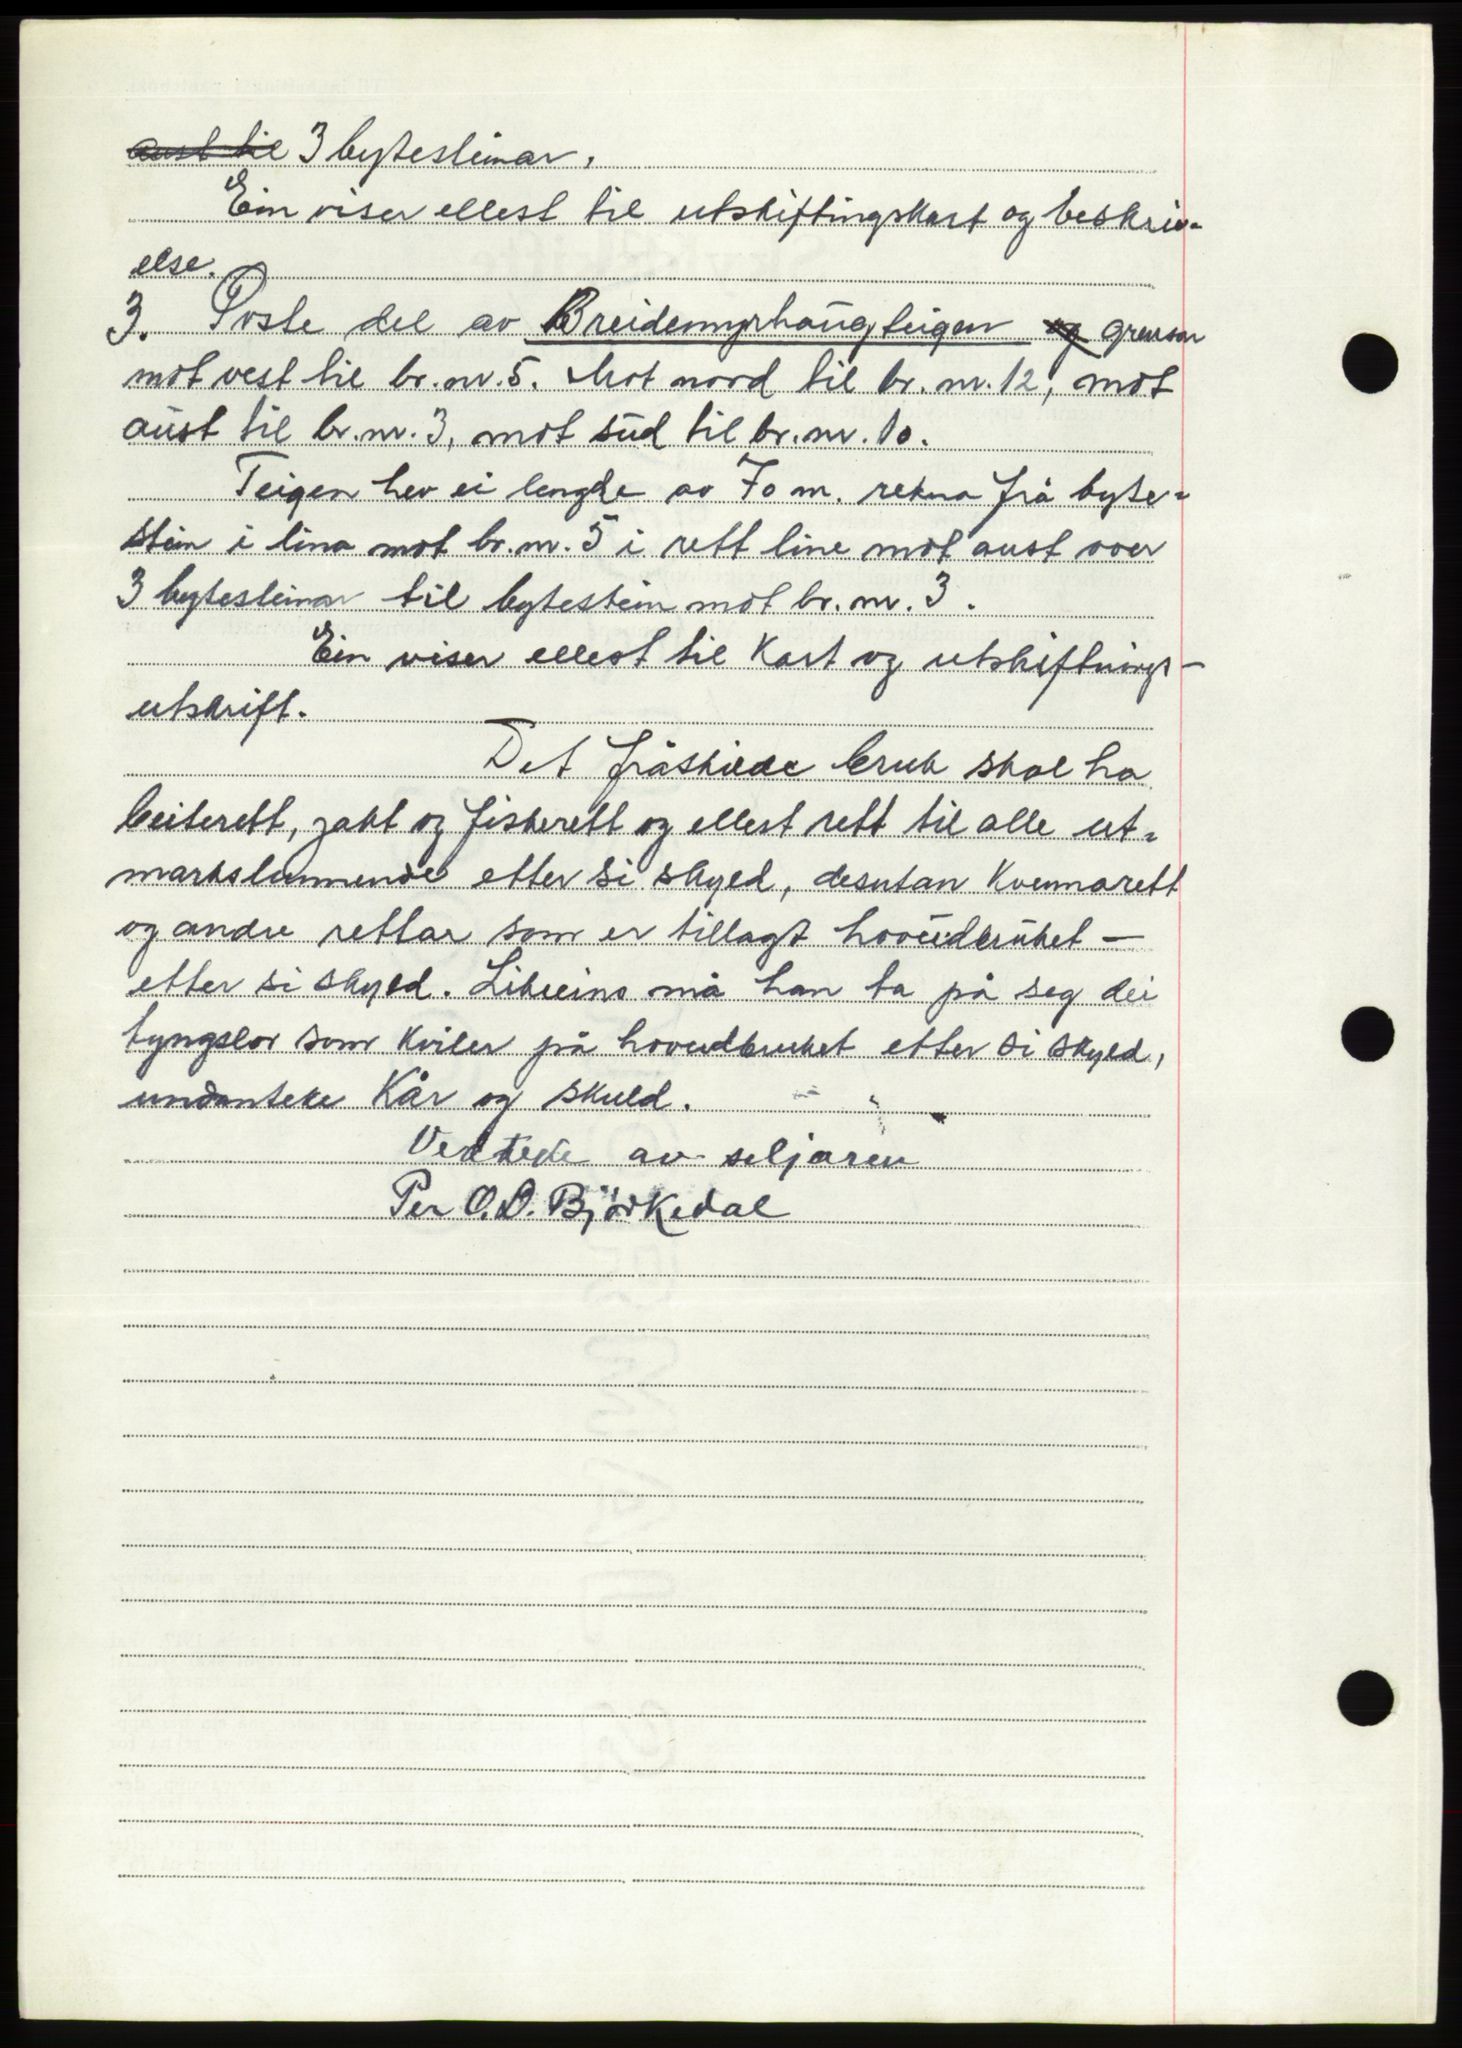 aust til 3 bytesteinar.
Ein viser ellest til utskiftingskart og beskriv-
else.
3. Øvste del av Breidemyrhaugteigen og grensar
mot vest til br.nr. 5. Mot nord til br. nr. 12, mot
aust til br.nr. 3, mot sud til br.nr. 10.
Teigen hev ei lengde av 70 m. rekna frå byte-
stein i lina mot br.nr. 5 i rett line mot aust over
3 bytesteinar til bytestein mot br.nr. 3.
Ein viser ellest til Kart og utskiftnings-
utskrift.
Det fråskilde bruk skal ha
beiterett, jakt og fiskerett og ellest rett til alle ut-
markslunnende etter si skyld, desutan Kvennarett
og andre rettar som er tillagt hovudbruket -
etter si skyld. Likeeins må han ta på seg dei
tyngslor som kviler på hovudbruket etter si skyld,
undanteke Kår og skuld.
Vedteke av seljaren
Per O. D. Björkedal